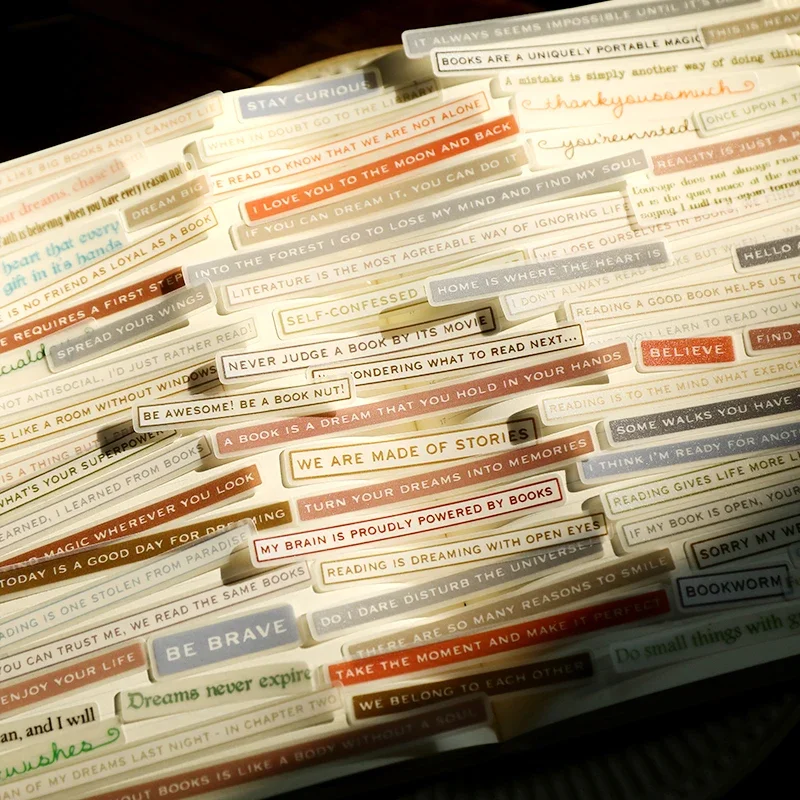 IT ALWAYS SEEMS IMPOSSIBLE UNTIL IT'S
BOOKS ARE A UNIQUELY PORTABLE MAGIC
THIS IS HEAV
A mistake is simply another way of doing thin
thankyousomuch
ONCE UPON A T
you'reinvited
REALITY IS JUST A
Courage does not always roar
it is the quiet voice at the en
saying I will try again tomor
STAY CURIOUS
WHEN IN DOUBT GO TO THE LIBRARY
LIKE BIG BOOKS AND I CANNOT LI
E READ TO KNOW THAT WE ARE NOT ALONE
our dreams, chase th
aith is believing when you have every reason not
DREAM BIG
I LOVE YOU TO THE MOON AND BACK
IF YOU CAN DREAM IT, YOU CAN DO IT
heart that every
gift in it's hands
INTO THE FOREST I GO TO LOSE MY MIND AND FIND MY SOUL
E IS NO FRIEND AS LOYAL AS A BOOK
LITERATURE IS THE MOST AGREEABLE WAY OF IGNORING LIFE
WE LOSE OURSELVES IN BOOKS, WE FIND
E REQUIRES A FIRST STEP
HOME IS WHERE THE HEART IS
HELLO
I DON'T ALWAYS READ BOOKS BUT
SELF-CONFESSED
SPREAD YOUR WINGS
READING A GOOD BOOK HELPS US T
NEVER JUDGE A BOOK BY ITS MOVIE
NOT ANTISOCIAL, I'D JUST RATHER READ!
YOU LEARN TO READ YOU
ONDERING WHAT TO READ NEXT...
BELIEVE
FIND
S LIKE A ROOM WITHOUT WINDOWS
BE AWESOME! BE A BOOK NUT!
A BOOK IS A DREAM THAT YOU HOLD IN YOUR HANDS
READING IS TO THE MIND WHAT EXERCI
IS A THING BUT
SOME WALKS YOU HAVE
WHAT'S YOUR SUPERPOWER
WE ARE MADE OF STORIES
I THINK I'M READY FOR ANOT
EARNED, I LEARNED FROM BOOKS
TURN YOUR DREAMS INTO MEMORIES
READING GIVES LIFE MORE L
MAGIC WHEREVER YOU LOOK
MY BRAIN IS PROUDLY POWERED BY BOOKS
IF MY BOOK IS OPEN, YOUR
TODAY IS A GOOD DAY FOR DREAMING
READING IS DREAMING WITH OPEN EYES
SORRY MY W
ADING IS ONE STOLEN FROM PARADISE
DO I DARE DISTURB THE UNIVERSE?
YOU CAN TRUST ME, WE READ THE SAME BOOKS
THERE ARE SO MANY REASONS TO SMILE
BOOKWORM
BE BRAVE
ENJOY YOUR LIFE
TAKE THE MOMENT AND MAKE IT PERFECT
Do small things with g
Dreams never expire
WE BELONG TO EACH OTHER
an, and I will
wishes
AN OF MY DREAMS LAST NIGHT - IN CHAPTER TWO
OUT BOOKS IS LIKE A BODY WITHOUT A SOUL